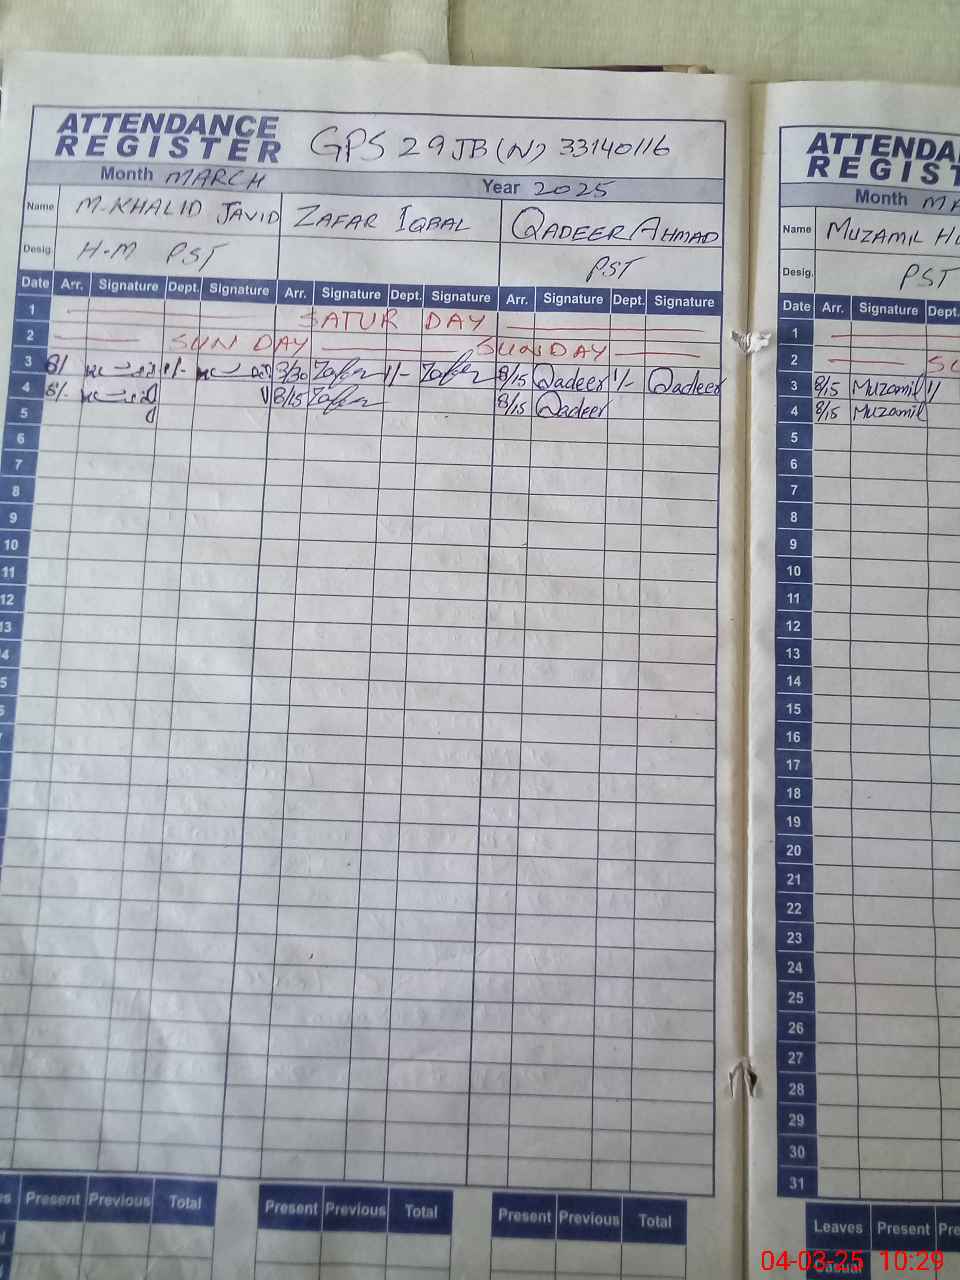 ATTENDANCE REGISTER GPS 29 JB (N) 33140116
Month MARCH Year 2025
Name M. KHALID JAVID ZAFAR IQBAL QADEER AHMAD
Desig. H-M PST PST
Date Arr. Signature Dept. Signature Arr. Signature Dept. Signature Arr. Signature Dept. Signature
1 SATUR DAY
2 SUN DAY SUNDAY
3 8/- 1/- Zafar 1/- Zafar 8/15 Qadeer 1/- Qadeer
4 8/- 8/15 Zafar 8/15 Qadeer
5
6
7
8
9
10
11
12
13
4
5
Present Previous Total Present Previous Total Present Previous Total
ATTENDA
REGIST
Month MA
Name MUZAMIL HU
Desig. PST
Date Arr. Signature Dept.
1
2 SU
3 8/15 Muzamil 1/
4 8/15 Muzamil
5
6
7
8
9
10
11
12
13
14
15
16
17
18
19
20
21
22
23
24
25
26
27
28
29
30
31
Leaves Present Pre
Casual
04-03-25 10:29